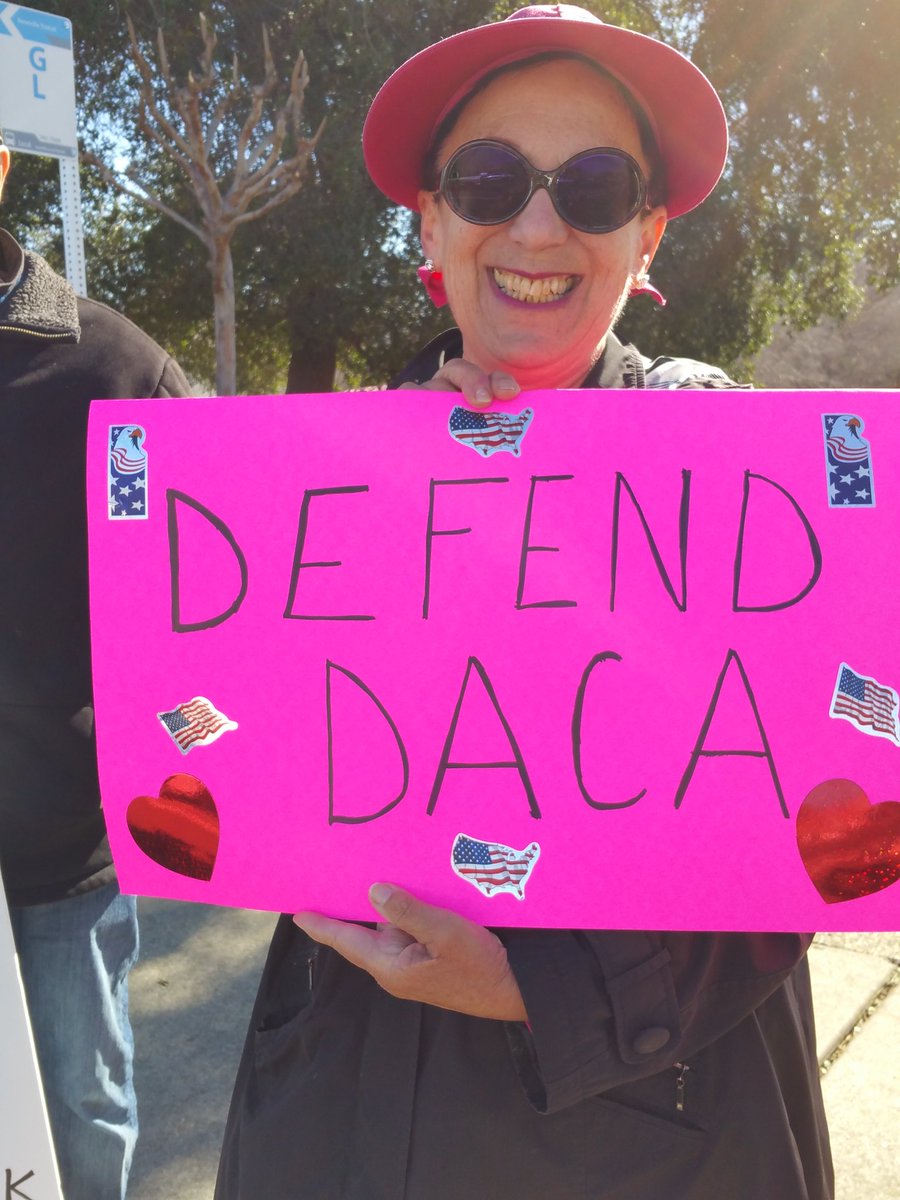 G
L
DEFEND
DACA
K